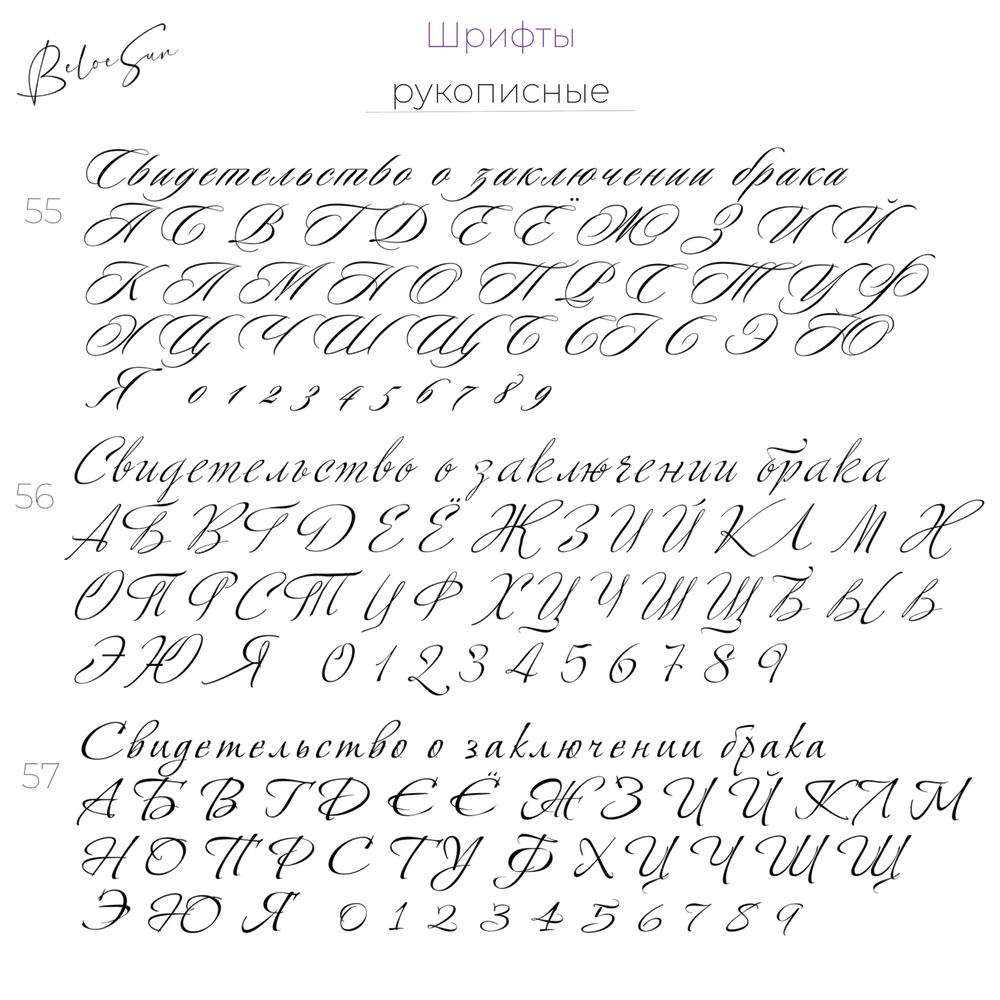 BeloeSun
Шрифты
рукописные
55
Свидетельство о заключении брака
А Б В Г Д Е Ё Ж З И Й
К Л М Н О П Р С Т У Ф
Х Ц Ч Ш Щ Ъ Ы Ь Э Ю
Я 0 1 2 3 4 5 6 7 8 9
56
Свидетельство о заключении брака
А Б В Г Д Е Ё Ж З И Й К Л М Н
О П Р С Т У Ф Х Ц Ч Ш Щ Ъ Ы Ь
Э Ю Я 0 1 2 3 4 5 6 7 8 9
57
Свидетельство о заключении брака
А Б В Г Д Е Ё Ж З И Й К Л М
Н О П Р С Т У Ф Х Ц Ч Ш Щ
Э Ю Я 0 1 2 3 4 5 6 7 8 9